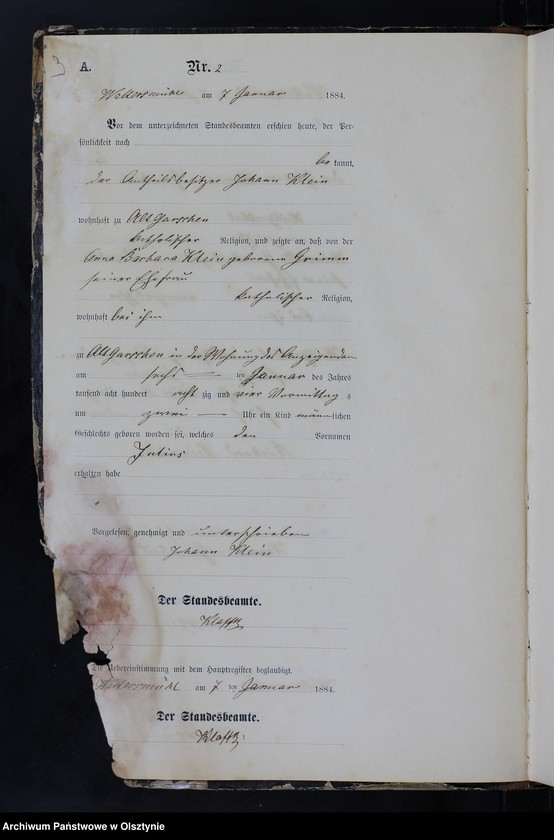 3 A. Nr. 2
am 7 Januar 1884.
Vor dem unterzeichneten Standesbeamten erschien heute, der Per-
sönlichkeit nach
be kannt,
der Antheilsbesitzer Johann Klein
wohnhaft zu Alt Garschen
katholischer Religion, und zeigte an, daß von der
Anna Barbara Klein geborene Grimm
seiner Ehefrau
katholischer Religion,
wohnhaft bei ihm
zu Alt Garschen in der Wohnung des Anzeigenden
am sechs ten Januar des Jahres
tausend acht hundert acht zig und vier Vormittag s
um zwei Uhr ein Kind männlichen
Geschlechts geboren worden sei, welches den Vornamen
Julius
erhalten habe
Vorgelesen, genehmigt und unterschrieben
Johann Klein
Der Standesbeamte.
Die Uebereinstimmung mit dem Hauptregister beglaubigt.
am 7 ten Januar 1884.
Der Standesbeamte.
Archiwum Państwowe w Olsztynie